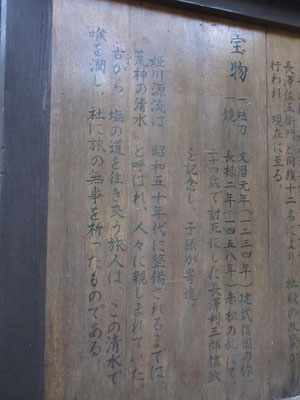 長澤佐五衛門と同族十二名により 社殿の
行われ 現在に至る。
宝物
一 短刀 文暦元年(一二三四年)建武信国の作
一 鏡 長禄二年(一四五八年)赤松の乱にて
二十四歳で討死にした長澤利三郎信政
を記念し、子孫が寄進。
姫川源流は 昭和五十年代に整備されるまでは
荒神の清水 と呼ばれ、人々に親しまれていた。
古から 塩の道を往き交う旅人は、この清水で
喉を潤し 社に旅の無事を祈ったものである。